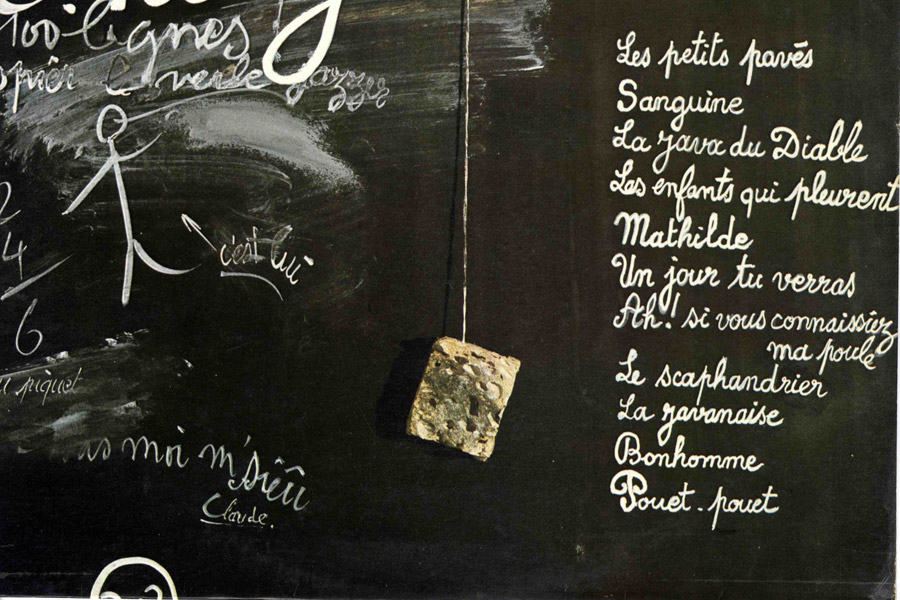 100 lignes
le verbe
c'est lui
2
4
6
piquet
moi m'siêû
Claude.
Les petits pavés
Sanguine
La java du Diable
Les enfants qui pleurent
Mathilde
Un jour tu verras
Ah! si vous connaissiez
ma poule
Le scaphandrier
La javanaise
Bonhomme
Pouet-pouet